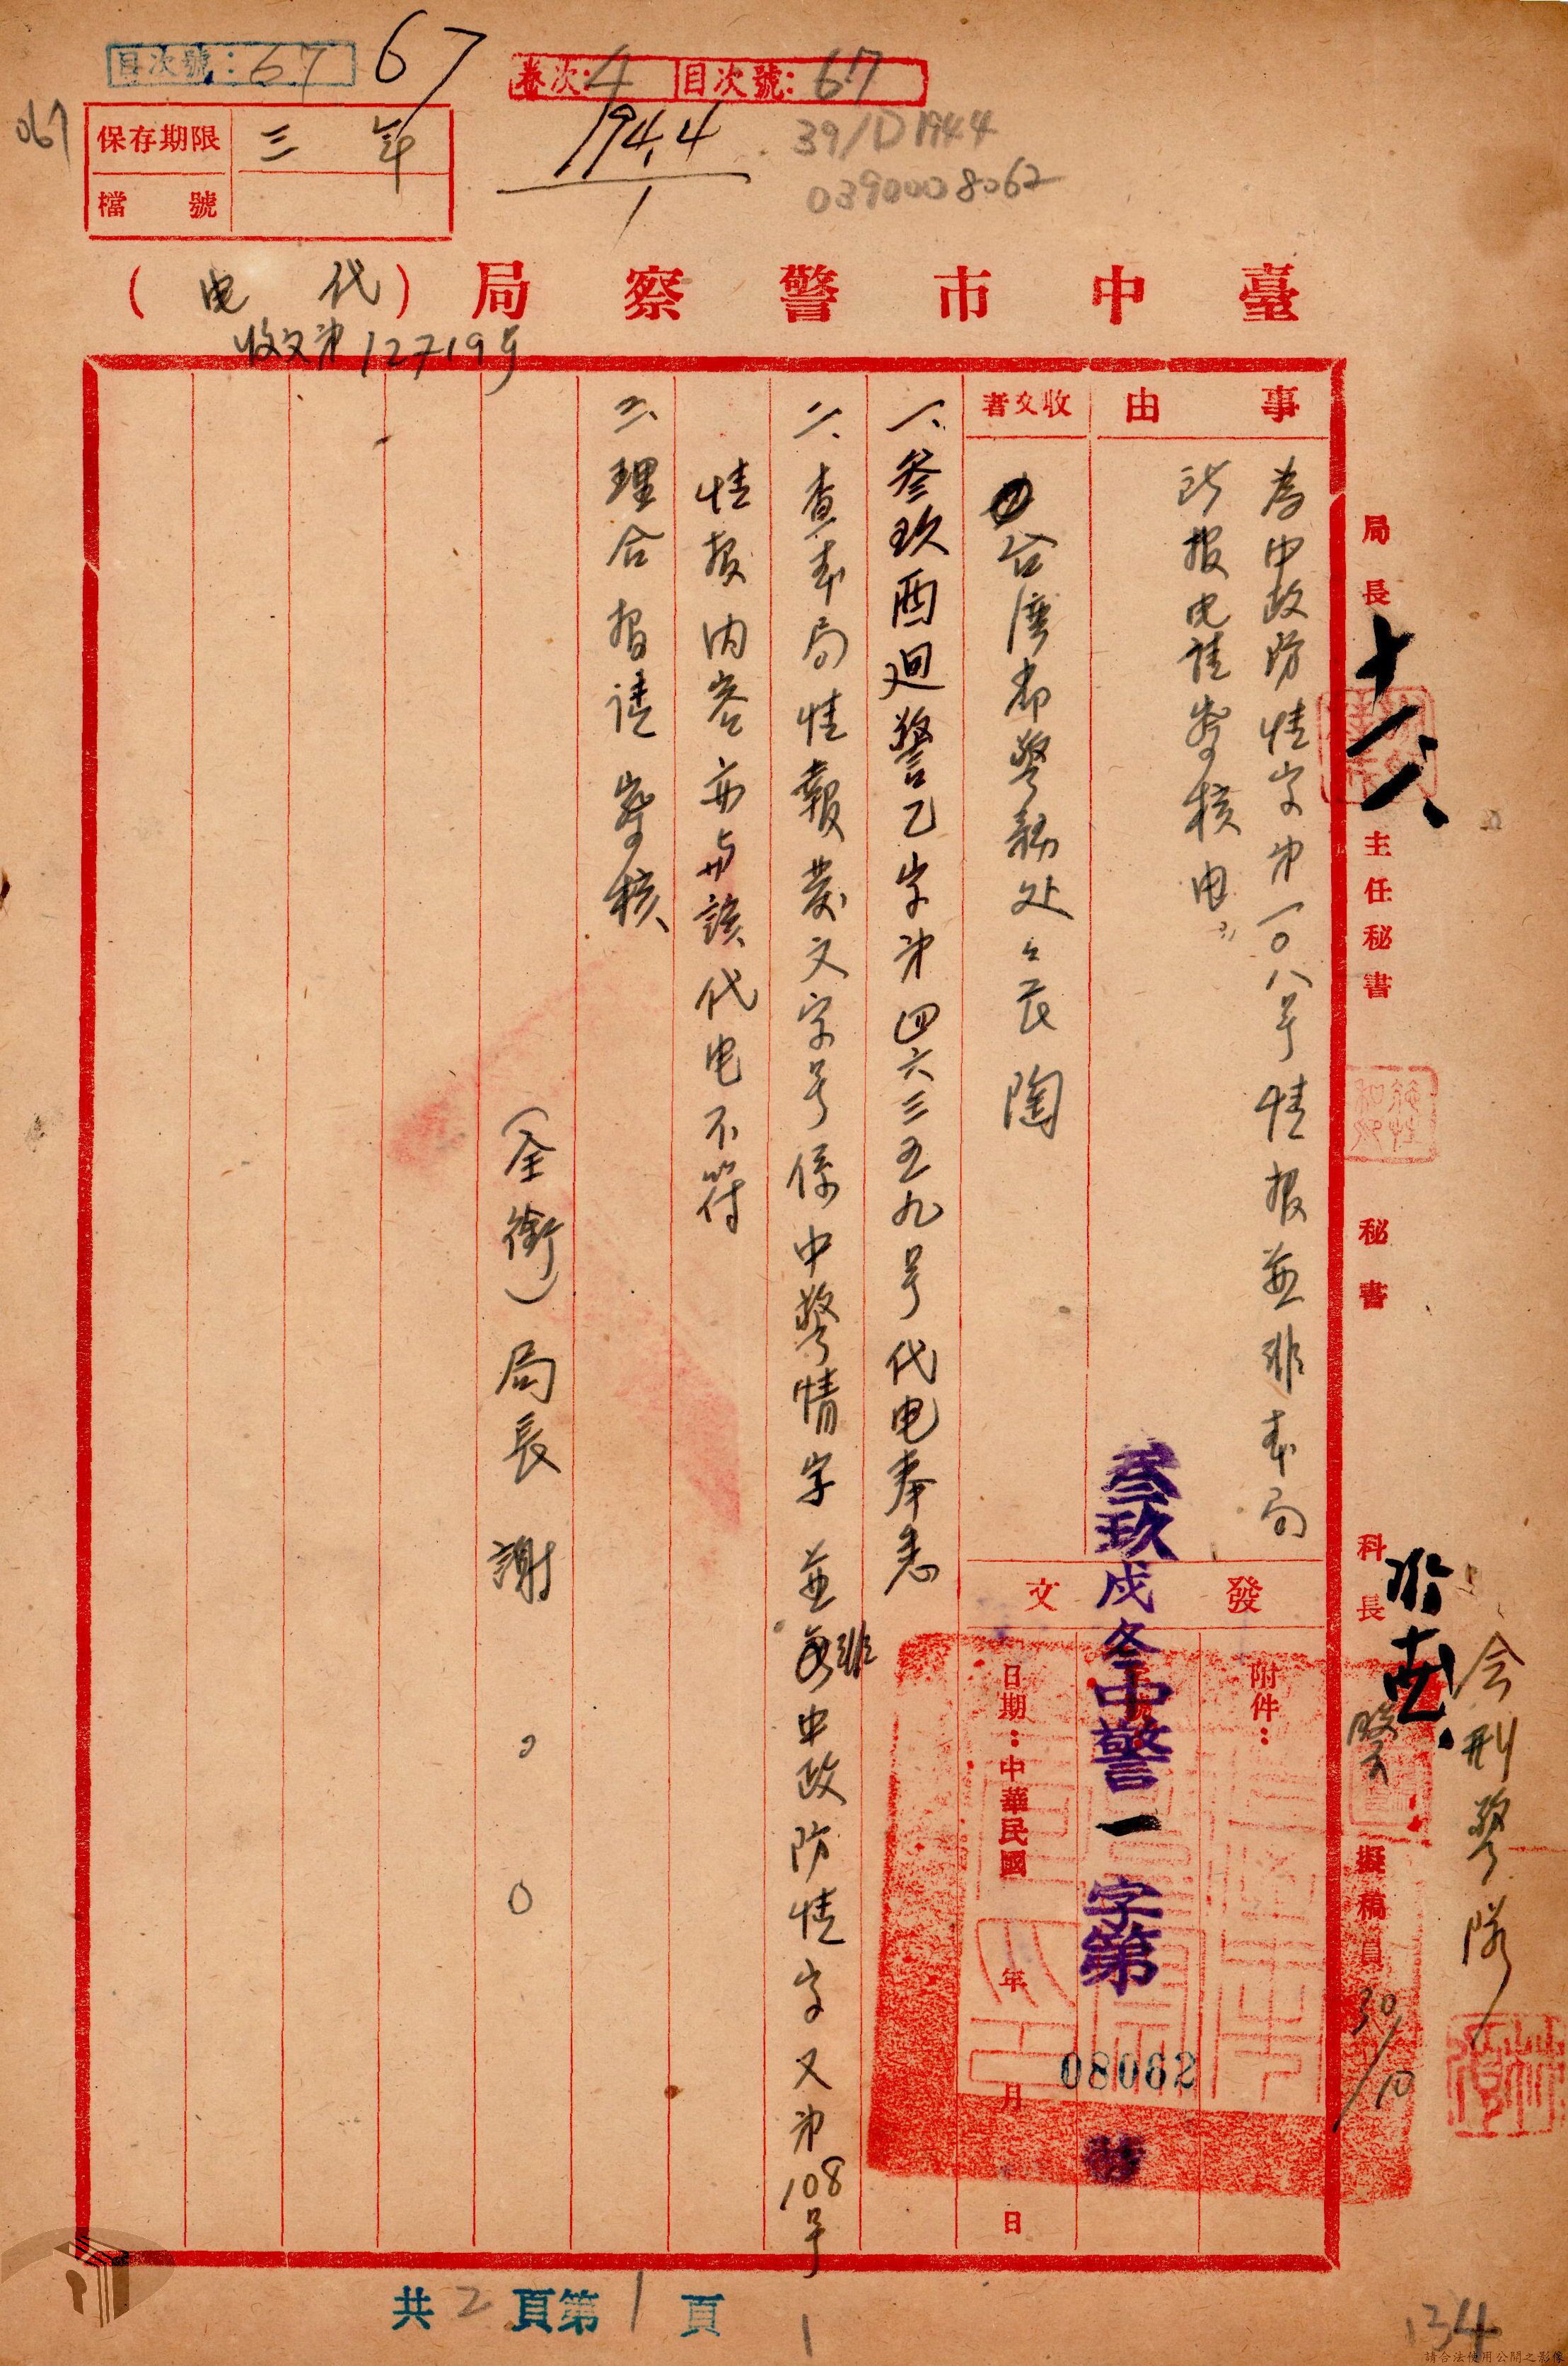 目次號：67
67
卷次：4 目次號：67
067
保存期限 三年
檔號
1944
1
39/D1944
0390008062
臺中市警察局（代电）
收文第12719号
事由
為中政防情字第一〇八号情报並非本局
所报电請詧核由
收文者
台湾省警務处々长陶
發文
附件：
叁玖戌冬中警一字第
08062
號
日期：中華民國 年 月 日
一、叁玖酉廻警乙字第四六三五九号代电奉悉
二、查本局情報發文字号係中警情字並非中政防情字又第108号
情报内容亦与該代电不符
三、理合报請詧核
（全銜）局長 謝
局長
主任秘書
秘書
科長
擬稿員
30/10
会刑警隊
共2頁第1頁
1
134
請合法使用公開之影像